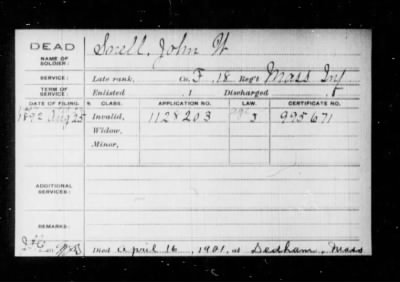 DEAD
NAME OF SOLDIER: Sorell, John W
SERVICE: Late rank, Co. F, 18 Reg't Mass Inf
TERM OF SERVICE: Enlisted , 1 Discharged , 1
DATE OF FILING. S. CLASS. APPLICATION NO. LAW. CERTIFICATE NO.
1892 Aug 25 Invalid, 1128203 3 995671
Widow,
Minor,
ADDITIONAL SERVICES:
REMARKS:
Died April 16, 1901, at Dedham, Mass